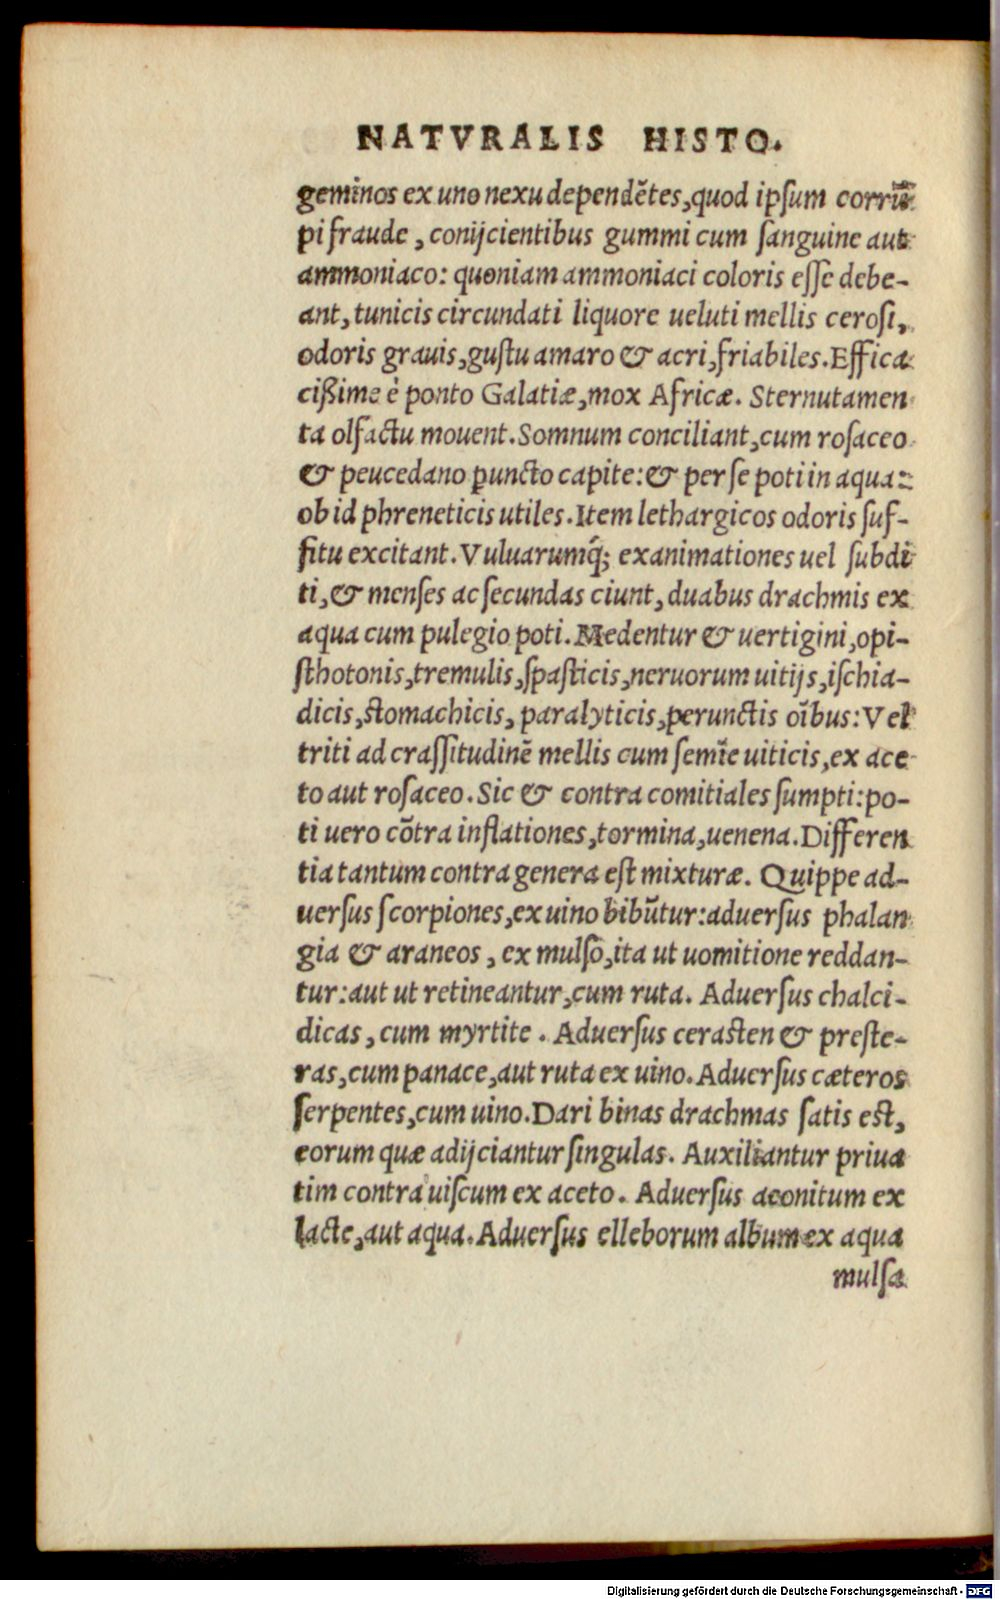 NATVRALIS HISTO.
geminos ex uno nexu dependẽtes, quod ipſum corrũ
pi fraude, conijcientibus gummi cum ſanguine aut
ammoniaco: quoniam ammoniaci coloris eſſe debe-
ant, tunicis circundati liquore ueluti mellis ceroſi,
odoris grauis, guſtu amaro & acri, friabiles. Effica
cißime è ponto Galatiæ, mox Africæ. Sternutamen
ta olfactu mouent. Somnum conciliant, cum roſaceo
& peucedano puncto capite: & per ſe poti in aqua:
ob id phreneticis utiles. Item lethargicos odoris ſuf-
fitu excitant. Vuluarumq́; exanimationes uel ſubdi
ti, & menſes ac ſecundas ciunt, duabus drachmis ex
aqua cum pulegio poti. Medentur & uertigini, opi-
ſthotonis, tremulis, ſpaſticis, neruorum uitijs, iſchia-
dicis, ſtomachicis, paralyticis, perunctis oĩbus: Vel
triti ad craſſitudinẽ mellis cum ſemĩe uiticis, ex ace
to aut roſaceo. Sic & contra comitiales ſumpti: po-
ti uero cõtra inflationes, tormina, uenena. Differen
tia tantum contra genera eſt mixturæ. Quippe ad-
uerſus ſcorpiones, ex uino bibũtur: aduerſus phalan
gia & araneos, ex mulſo, ita ut uomitione reddan-
tur: aut ut retineantur, cum ruta. Aduerſus chalci-
dicas, cum myrtite. Aduerſus ceraſten & preſte-
ras, cum panace, aut ruta ex uino. Aduerſus cæteros
ſerpentes, cum uino. Dari binas drachmas ſatis eſt,
eorum quæ adijciantur ſingulas. Auxiliantur priua
tim contra uiſcum ex aceto. Aduerſus aconitum ex
lacte, aut aqua. Aduerſus elleborum album ex aqua
mulſa
Digitalisierung gefördert durch die Deutsche Forschungsgemeinschaft - DFG